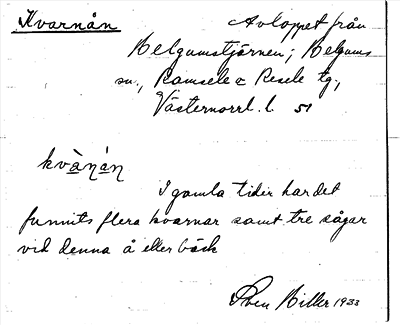 Kvarnån
Avloppet från
Helgumstjärnen; Helgums
sn., Ramsele o Resele tg.,
Västernorrl. l. 51
kvànán
I gamla tider har det
funnits flera kvarnar samt tre sågar
vid denna å eller bäck
Sven Hiller 1933